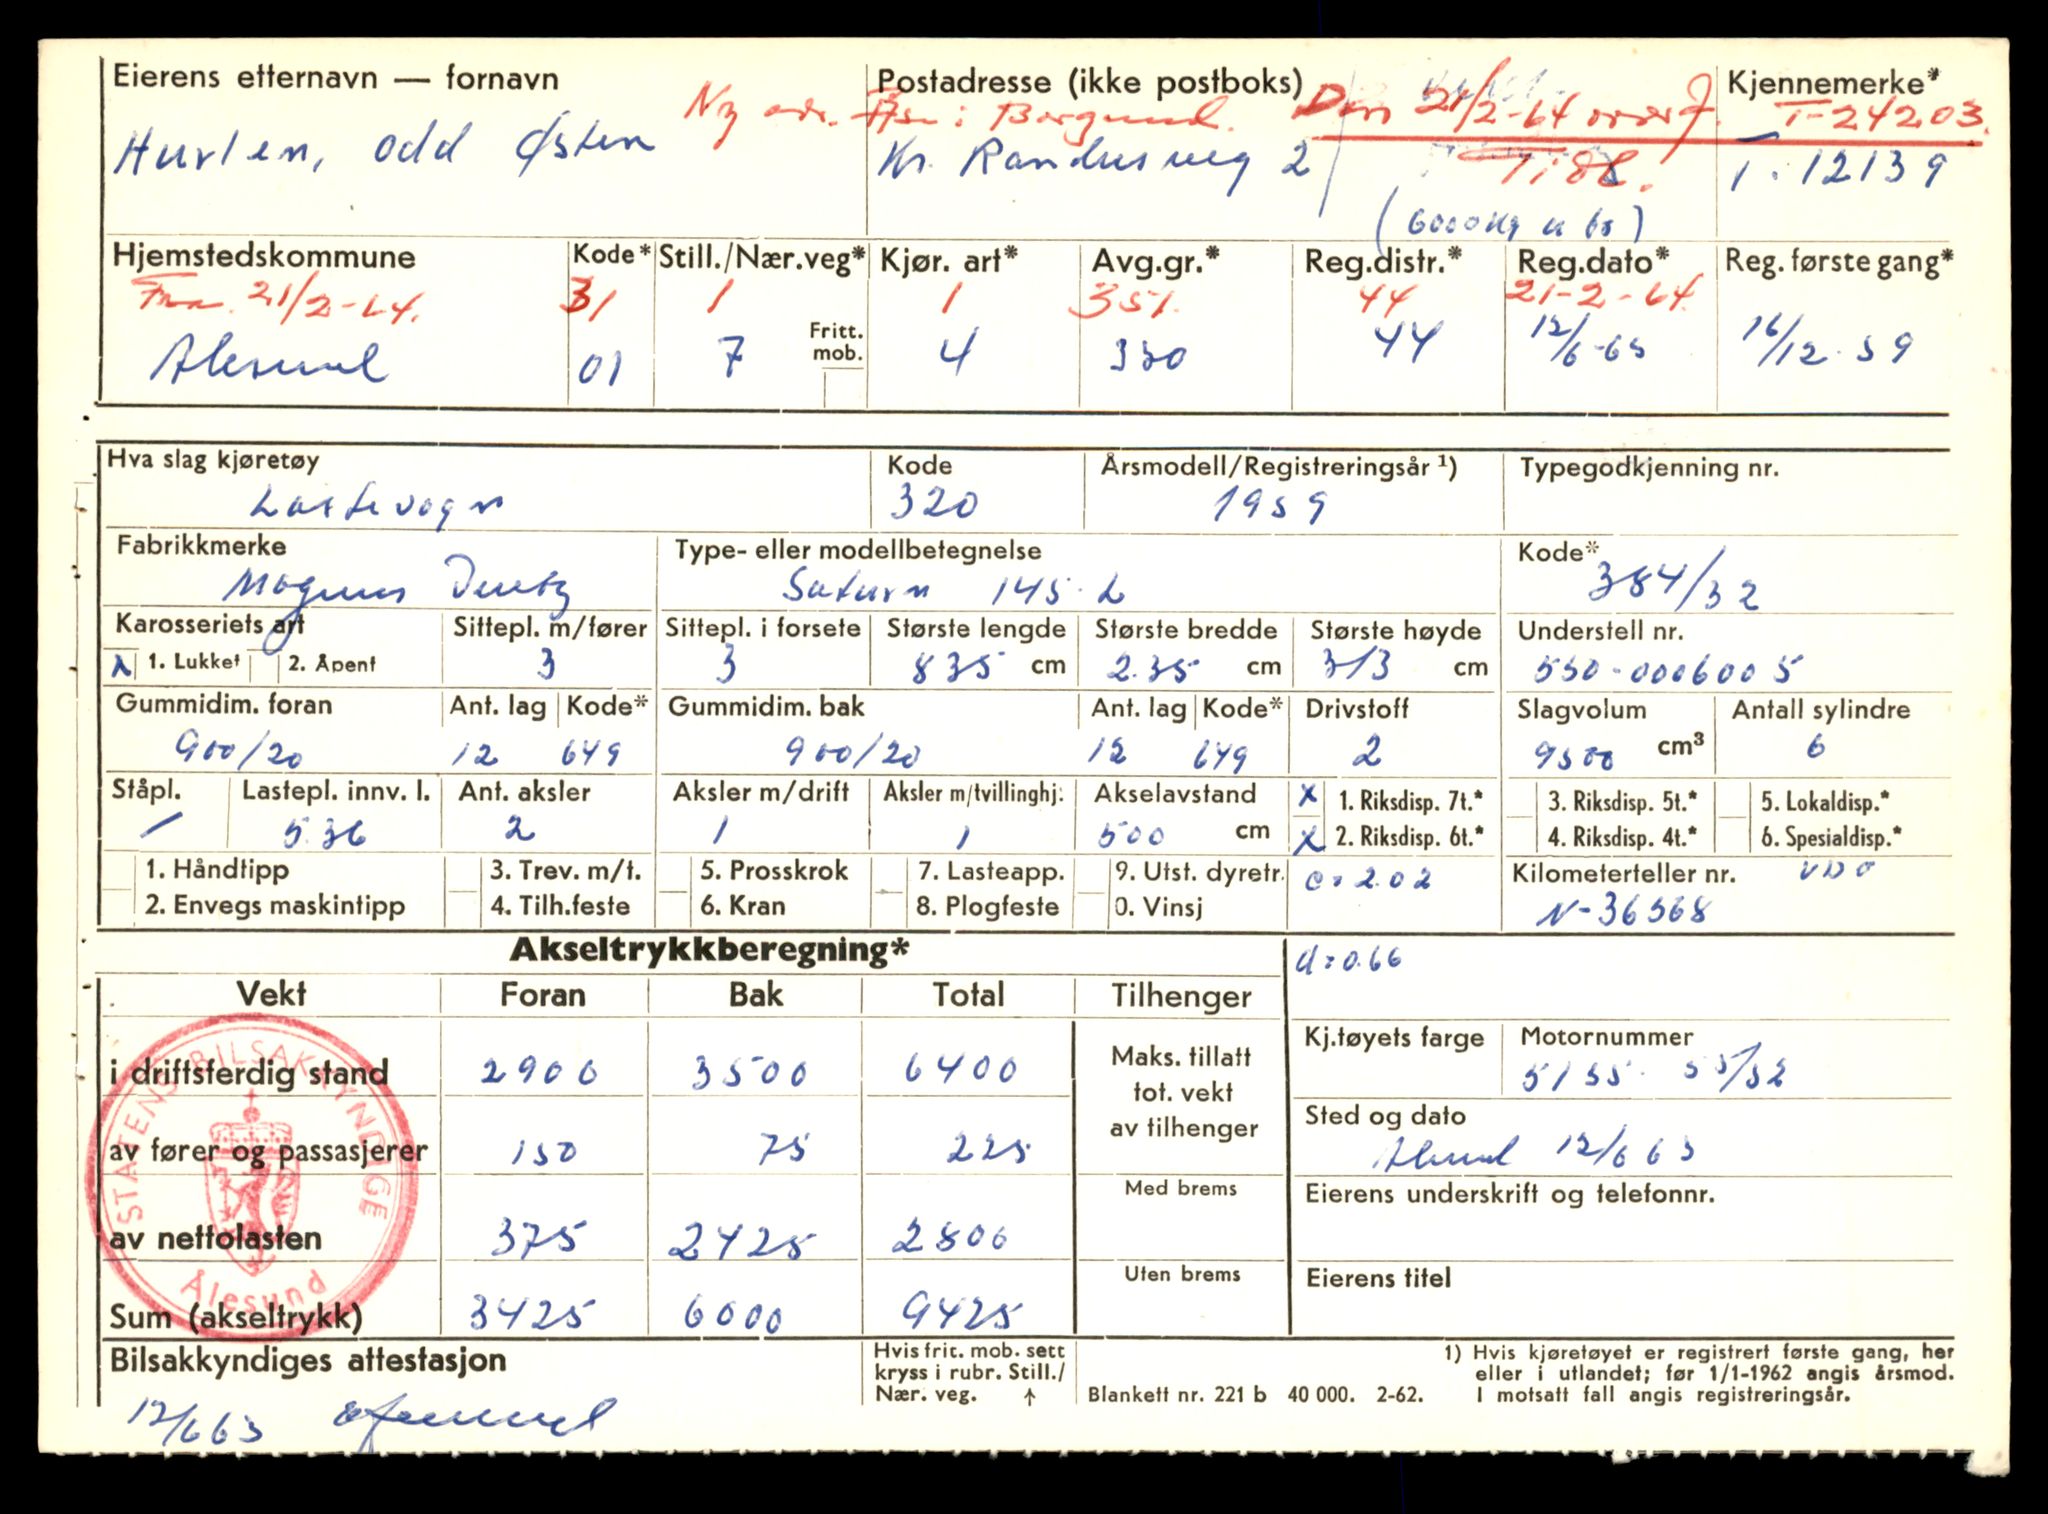 Eierens etternavn — fornavn Postadresse (ikke postboks) Kjennemerke*
Ny adr. Åse i Borgund. Den 21/2-64 T-24203.
Hurlen, Odd Østen Kr. Randersveg 2 T-12139
(6000 kg u bs)
Hjemstedskommune Kode* Still./Nær.veg* Kjør. art* Avg.gr.* Reg.distr.* Reg.dato* Reg. første gang*
Fra 21/2-64. 31 1 1 351. 44 21-2-64.
Ålesund 01 7 Fritt. mob. 4 330 44 12/6-63 16/12-59
Hva slag kjøretøy Kode Årsmodell/Registreringsår ¹) Typegodkjenning nr.
Lastevogn 320 1959
Fabrikkmerke Type- eller modellbetegnelse Kode*
Magirus Deutz Saturn 145 L 384/32
Karosseriets art Sittepl. m/fører Sittepl. i forsete Største lengde Største bredde Største høyde Understell nr.
x 1. Lukket 2. Åpent 3 3 835 cm 235 cm 313 cm 550-0006005
Gummidim. foran Ant. lag Kode* Gummidim. bak Ant. lag Kode* Drivstoff Slagvolum Antall sylindre
900/20 12 649 900/20 12 649 2 9500 cm³ 6
Ståpl. Lastepl. innv. l. Ant. aksler Aksler m/drift Aksler m/tvillinghj. Akselavstand x 1. Riksdisp. 7t.* 3. Riksdisp. 5t.* 5. Lokaldisp.*
/ 536 2 1 1 500 cm x 2. Riksdisp. 6t.* 4. Riksdisp. 4t.* 6. Spesialdisp.*
1. Håndtipp 3. Trev. m/t. 5. Prosskrok 7. Lasteapp. 9. Utst. dyretr. c=2.02 Kilometerteller nr. VDO
2. Envegs maskintipp 4. Tilh.feste 6. Kran 8. Plogfeste 0. Vinsj N-36568
Akseltrykkberegning* d=0.66
Vekt Foran Bak Total Tilhenger
i driftsferdig stand 2900 3500 6400
Maks. tillatt
tot. vekt
av tilhenger
Kj.tøyets farge Motornummer
5155 55/52
av fører og passasjerer 150 75 225
Sted og dato
Ålesund 12/6 63
Med brems Eierens underskrift og telefonnr.
av nettolasten 375 2425 2800
Uten brems Eierens titel
Sum (akseltrykk) 3425 6000 9425
STATENS BILSAKKYNDIGE
Ålesund
Bilsakkyndiges attestasjon
12/6 63
Hvis frit. mob. sett
kryss i rubr. Still./
Nær. veg. ↑
Blankett nr. 221 b 40 000. 2-62.
1) Hvis kjøretøyet er registrert første gang, her
eller i utlandet; før 1/1-1962 angis årsmod.
I motsatt fall angis registreringsår.